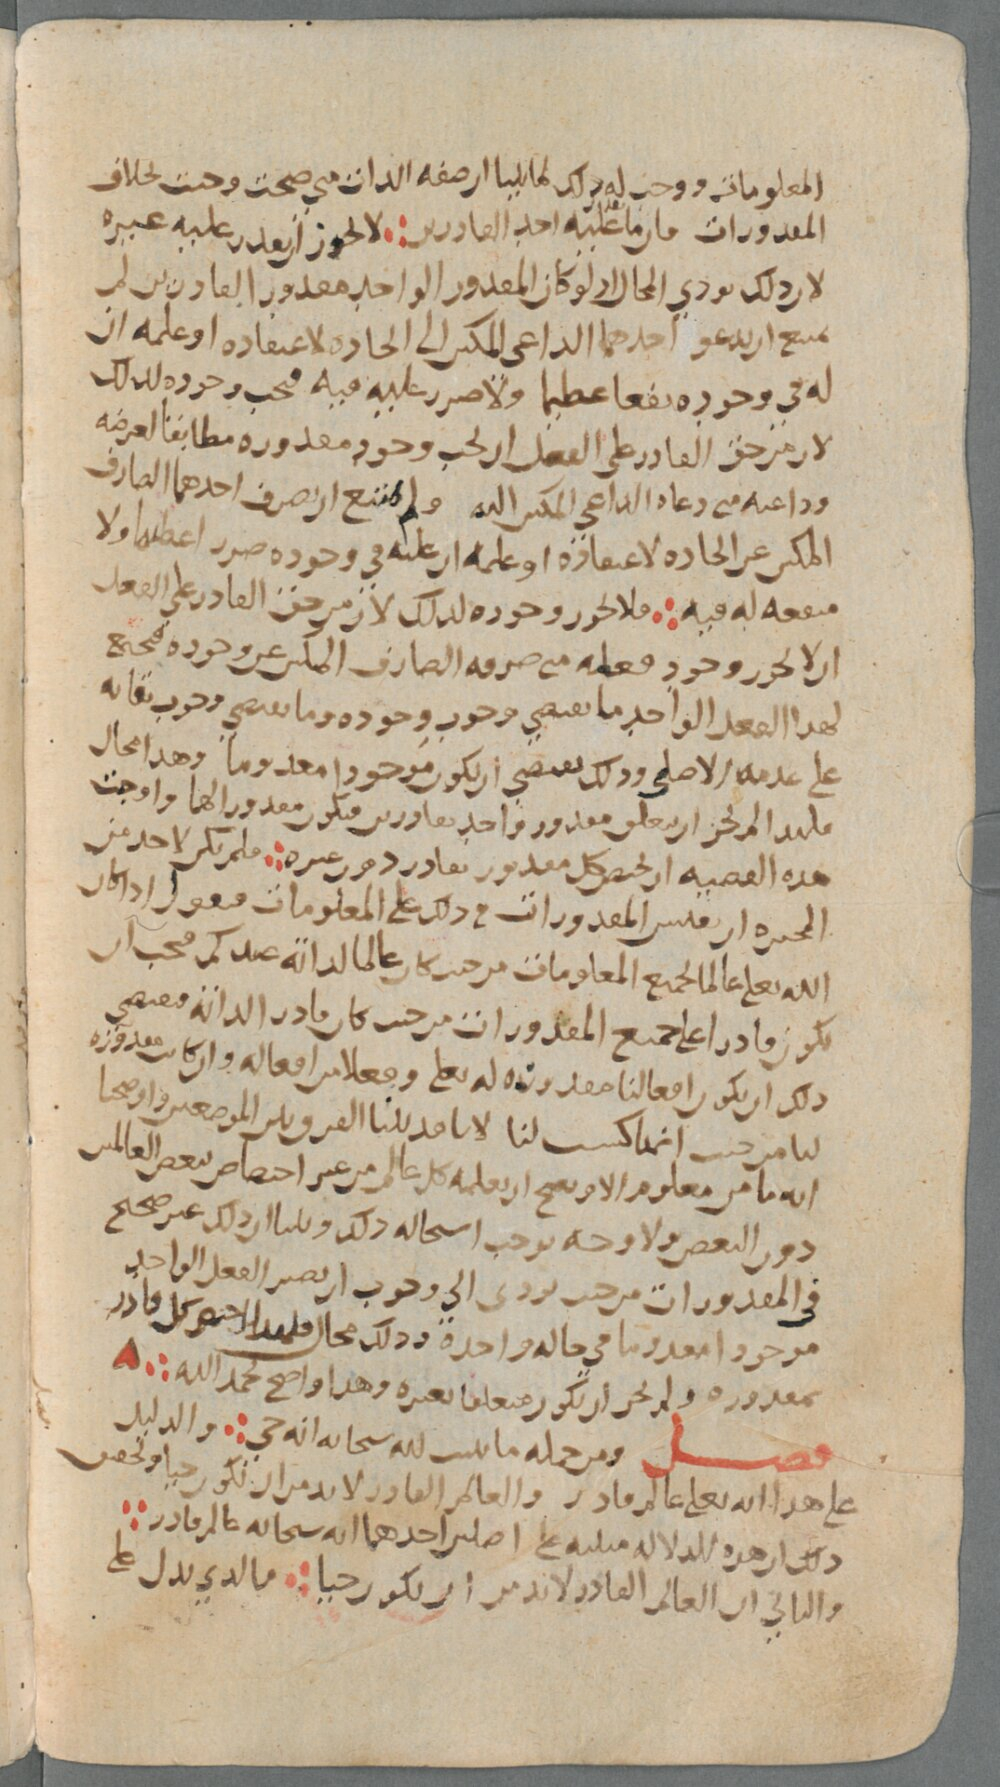 المعلومات ووجب له ذلك لما بينا ان صفه الذات متى صحت وجبت بخلاف
المقدورات فان ما قدر عليه احد القادرين لا يجوز ان يقدر عليه غيره
لان ذلك يودي الى المحال اذ لو كان المقدور الواحد مقدورا لقادرين لم
يمتنع ان يدعو احدهما الداعي المكين الى ايجاده لاعتقاده او علمه ان
له في وجوده نفعا عظيما ولا ضرر عليه فيه فيجب وجوده لذلك
لان من حق القادر على الفعل ان يجب وجود مقدوره مطابقا لغرضه
وداعيه متى دعاه الداعي المكين اليه ولم يمتنع ان يصرف احدهما الصارف
المكين عن ايجاده لاعتقاده او علمه ان عليه في وجوده ضررا عظيما ولا
منفعه له فيه فلا يجوز وجوده لذلك لان من حق القادر على الفعل
ان لا يجوز وجود فعله متى صرفه الصارف المكين عن وجوده فيجتمع
لهذا الفعل الواحد ما يقتضي وجوب وجوده وما يقتضي وجوب بقائه
على عدمه الاصلي وذلك يقتضي ان يكون موجودا معدوما وهذا محال
فلهذا لم يجز ان يتعلق مقدور واحد بقادرين فيكون مقدورا لهما واوجبت
هذه القضيه ان يختص كل مقدور بقادر دون غيره فلم يكن لاحد من
المجبره ان يقيس المقدورات في ذلك على المعلومات فيقول اذا كان
الله تعالى عالما بجميع المعلومات من حيث كان عالما لذاته عندكم فيجب ان
يكون قادرا على جميع المقدورات من حيث كان قادرا لذاته فيقتضي
ذلك ان يكون افعالنا مقدوره له تعالى وفعلا من افعاله وان كانت مقدوره
لنا من حيث انها كسب لنا لانا قد بينا الفرق بين الموضعين واوضحنا
انه ما من معلوم الا ويصح ان يعلمه كل عالم من غير اختصاص لبعض العالمين
دون البعض ولا وجه يوجب استحاله ذلك وبينا ان ذلك غير صحيح
في المقدورات من حيث يودي الى وجوب ان يصير الفعل الواحد
موجودا معدوما في حاله واحدة وذلك محال فلهذا اختص كل قادر
بمقدوره ولم يجز ان يكون متعلقا بغيره وهذا واضح بحمد الله
فصل ومن جمله ما يثبت لله سبحانه انه حي والدليل
على هذا انه تعالى عالم قادر والعالم القادر لا بد من ان يكون حيا وتحقيق
ذلك ان هذه الدلاله مبنيه على اصلين احدهما انه سبحانه عالم قادر
والثاني ان العالم القادر لا بد من ان يكون حيا فالذي يدل على